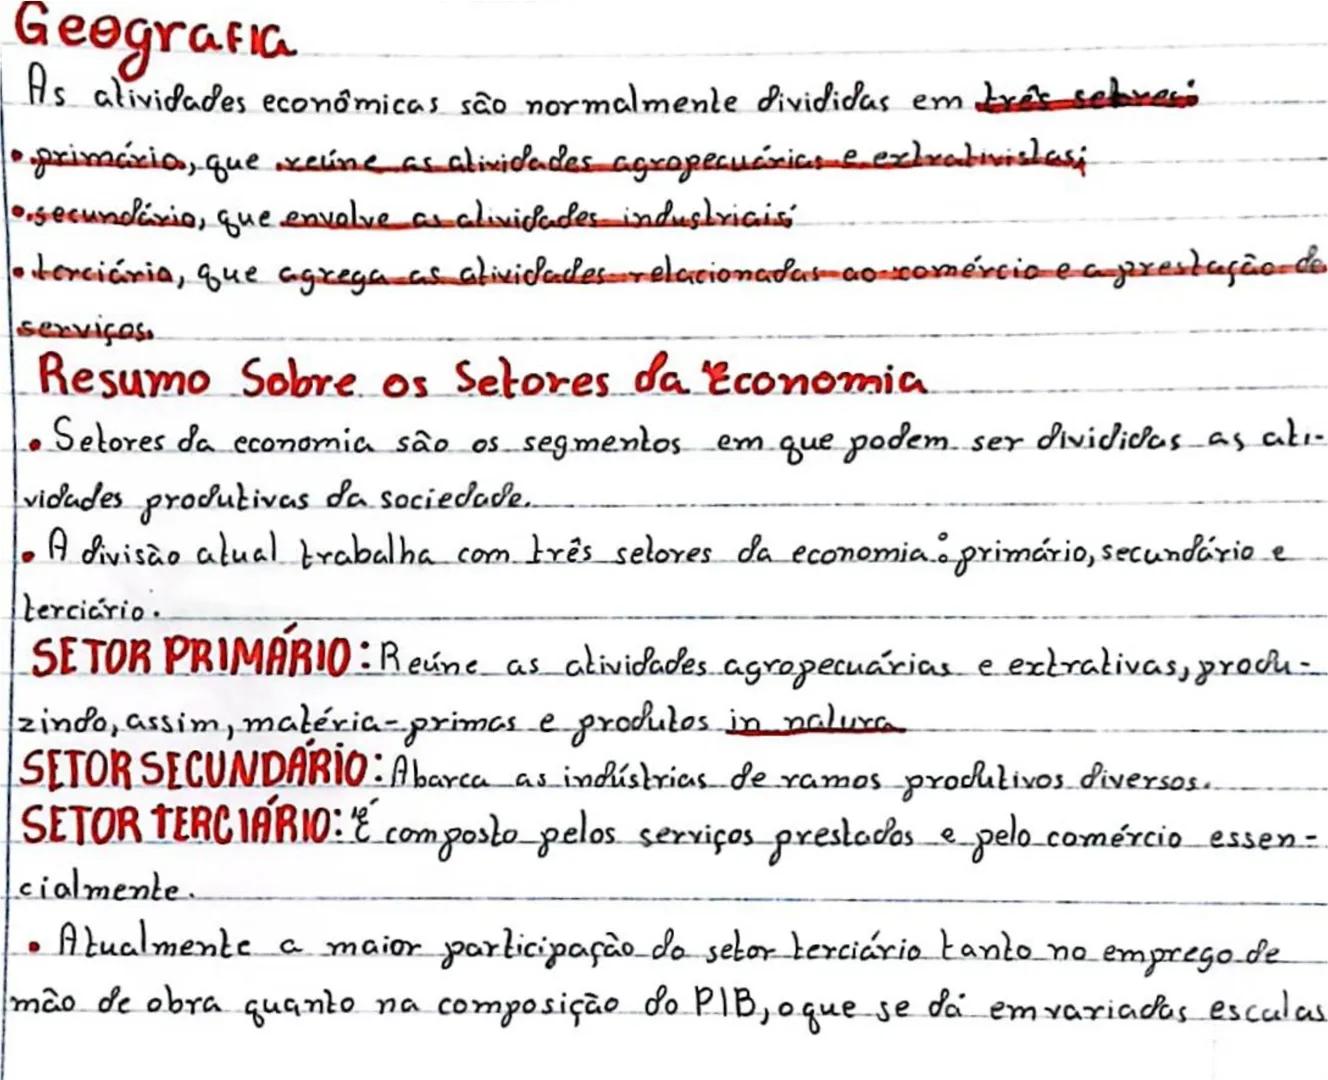 Geografia
As atividades econômicas são normalmente divididas em três setores:
• primário, que reúne as atividades agropecuárias e extrativistas;
• secundário, que envolve as atividades industriais;
• terciário, que agrega as atividades relacionadas ao comércio e a prestação de
serviços.
Resumo Sobre os Setores da Economia
• Setores da economia são os segmentos em que podem ser divididas as ati-
vidades produtivas da sociedade.
• A divisão atual trabalha com três setores da economia: primário, secundário e
terciário.
SETOR PRIMÁRIO: Reúne as atividades agropecuárias e extrativas, produ-
zindo, assim, matéria-primas e produtos in natura
SETOR SECUNDÁRIO: Abarca as indústrias de ramos produtivos diversos.
SETOR TERCIÁRIO: É composto pelos serviços prestados e pelo comércio essen-
cialmente.
• Atualmente a maior participação do setor terciário tanto no emprego de
mão de obra quanto na composição do PIB, o que se dá em variadas escalas